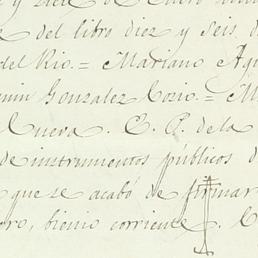 y siete de Enero
del libro diez y seis d
del Rio. = Mariano Agu
min Gonzalez Cosio. = M
Cueva. E. P. de la
de instrumentos públicos d
que se acabó de firmar
oro, bienio corriente. C